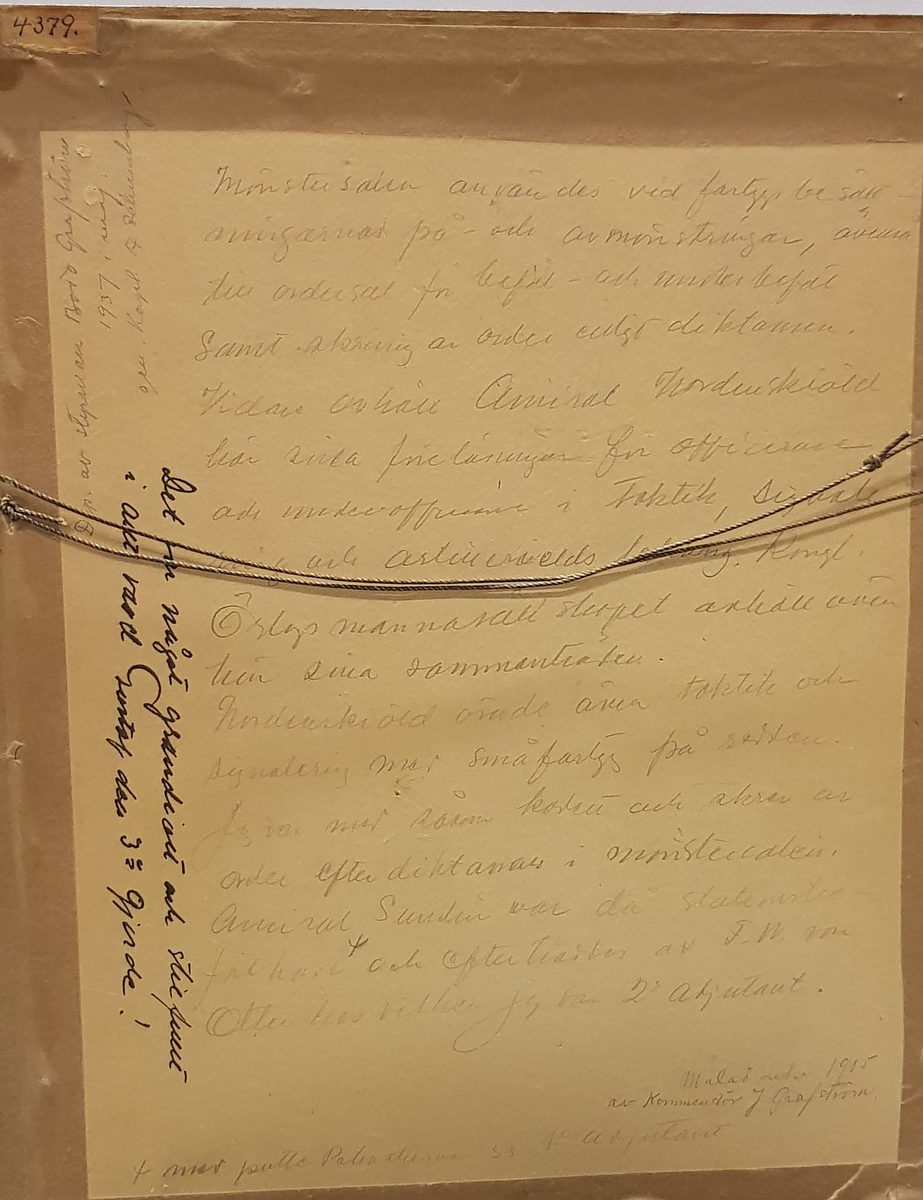 4379.
Mönstersalen användes vid fartygsbesätt-
ningarnas på- och avmönstringar, även
till ordersal för befäl- och underbefäl
samt skrivning av order enligt diktamen.
Vidare avhöll Amiral Nordenskiöld
här sina föreläsningar för officerare
och underofficerare i Taktik, Signale-
ring och artilleri Kongl.
Örlogsmannasällskapet avhöll även
här sina sammanträden.
Nordenskiöld övade även taktik och
signalering med småfartyg på redden.
Jag var med såsom kadett och skrev av
order efter diktamen i mönstersalen.
Amiral Sundin var då stationsbe-
fälhavare + och efterträddes av F.W. von
Otter hos vilken jag var 2e adjutant.
Målad 1915
av Kommendör J Grafström.
+ med putte Palander ss 1e adjutant
Det var något grandiost och stilfullt
i allt vad Gustaf den 3e gjorde!
av styresman
1937 i maj